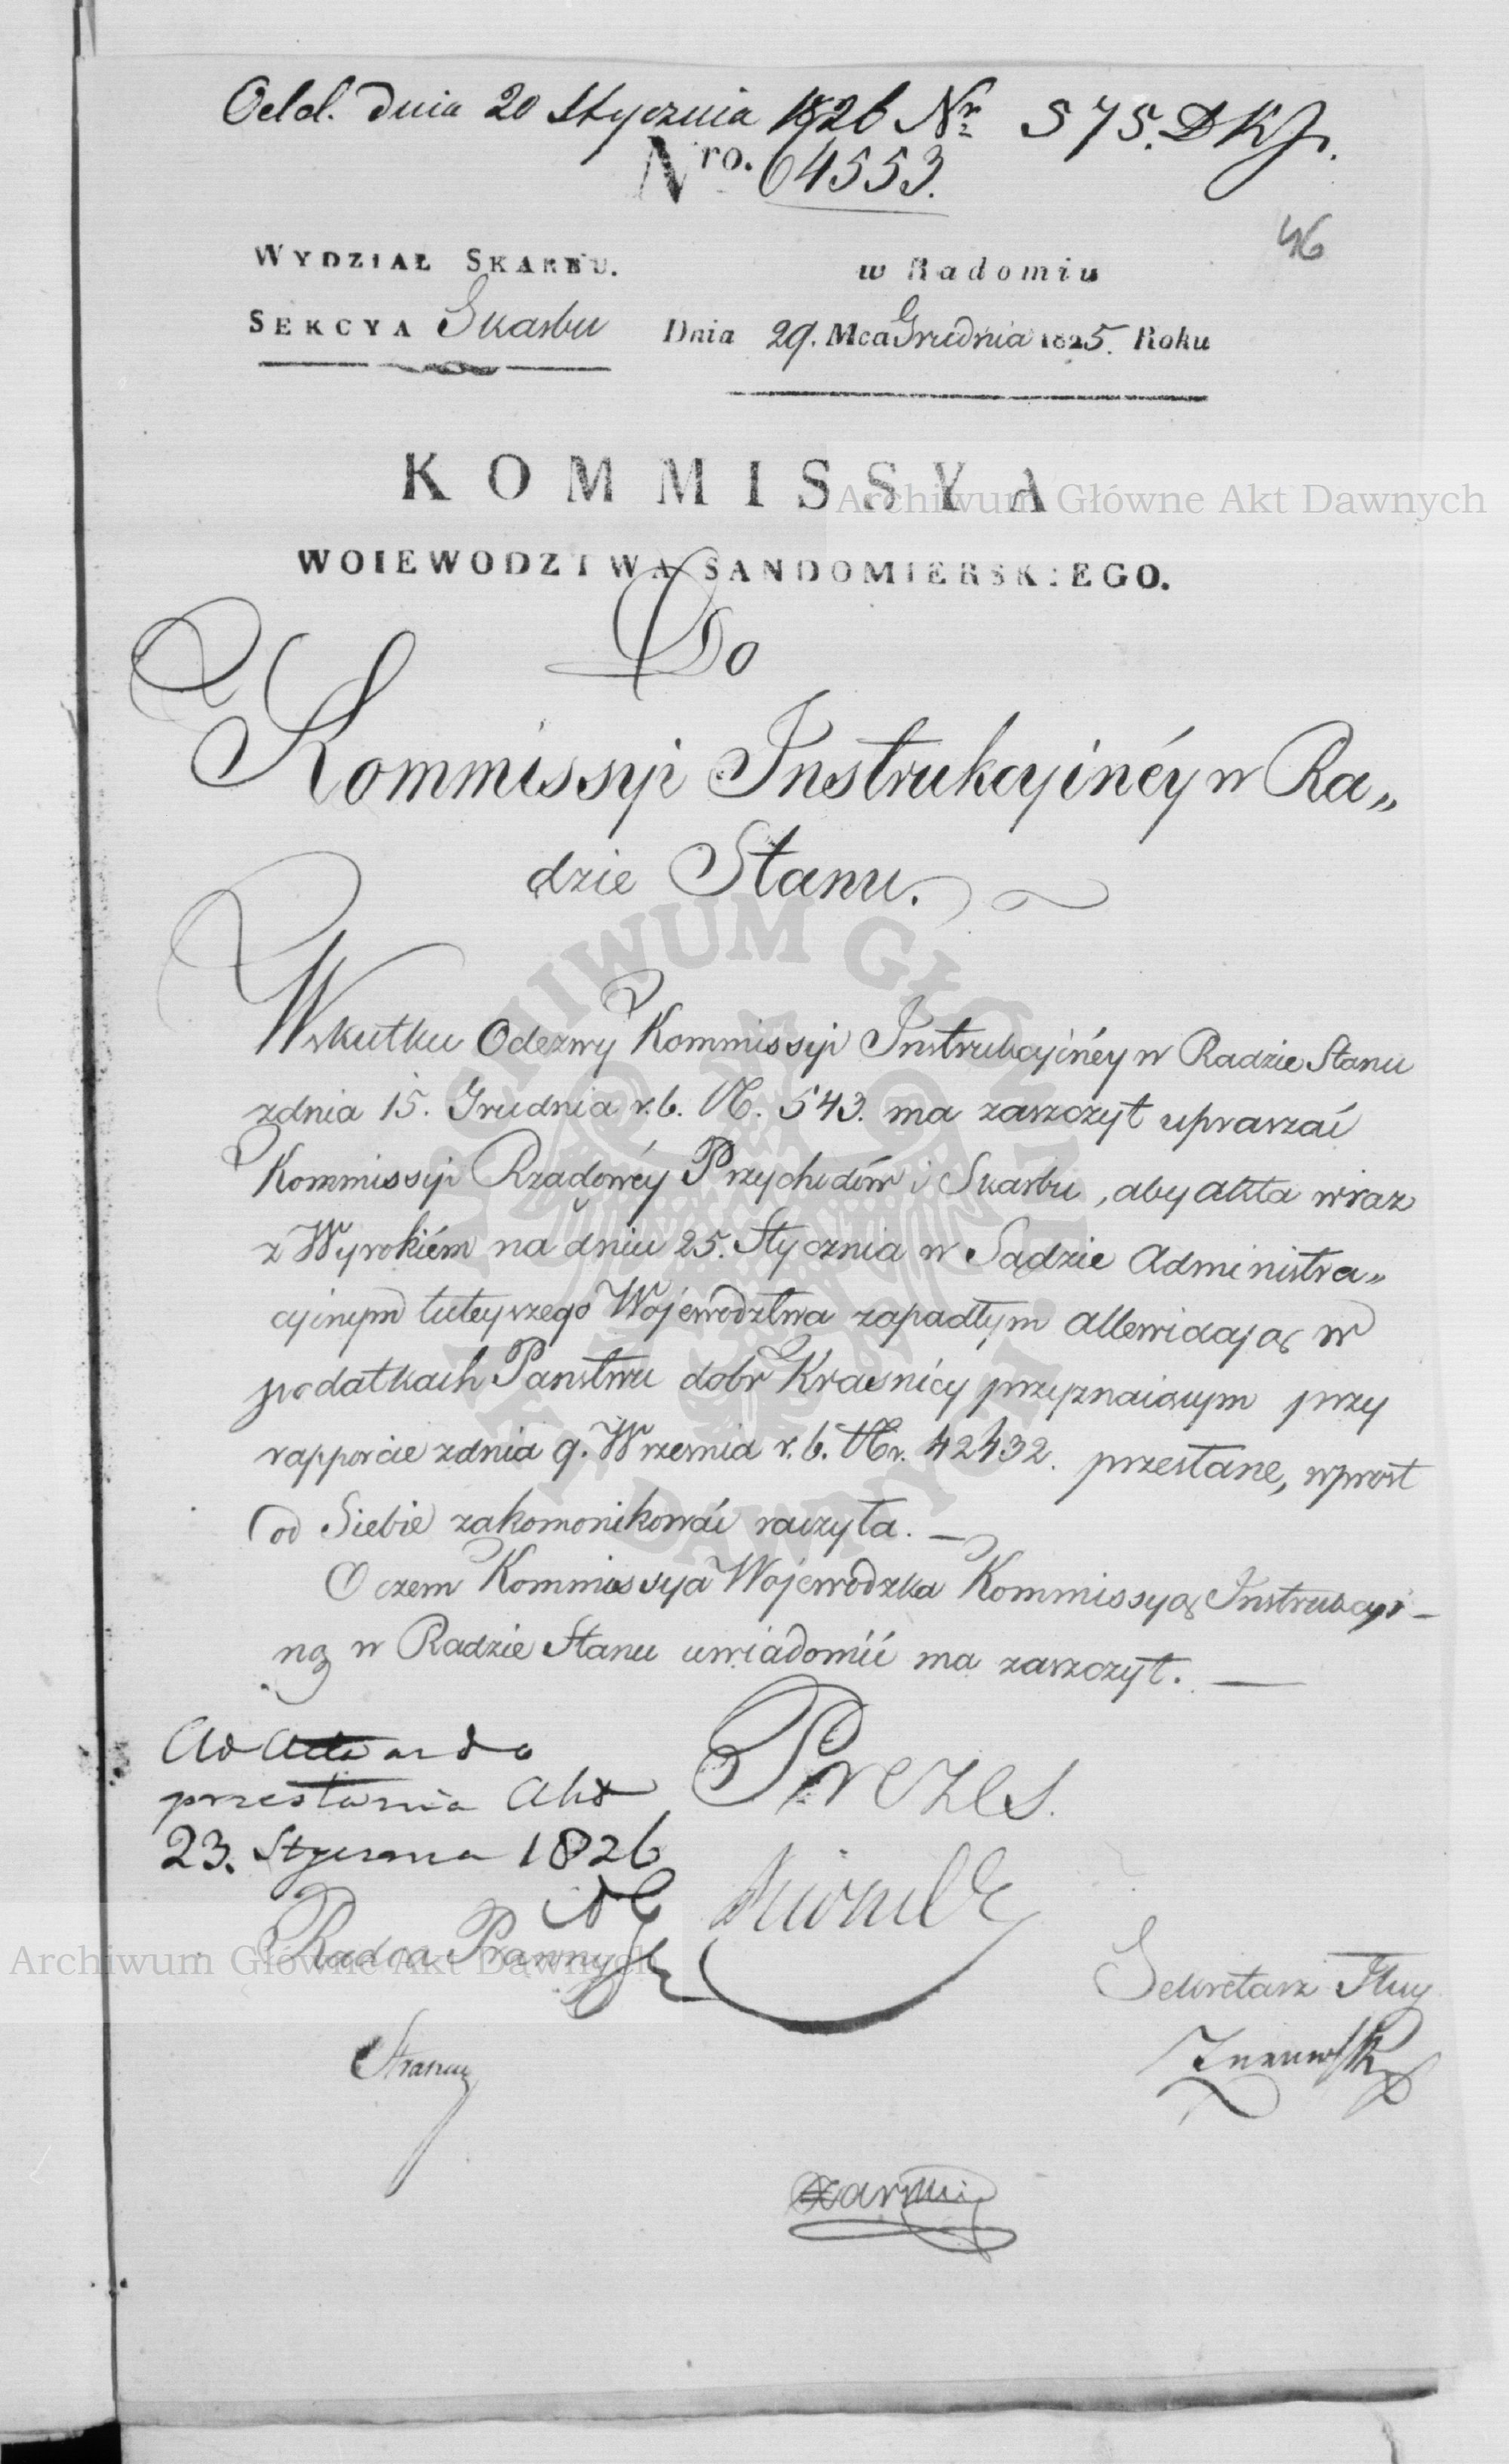 Odd. dnia 20 Stycznia 1826 Nr 575. DKJ.
Nro. 64553.
46
WYDZIAŁ SKARBU. w Radomiu
SEKCYA Skarbu Dnia 29. Mca Grudnia 1825. Roku
KOMMISSYA
WOIEWODZTWA SANDOMIERSKIEGO.
Do
Kommissyi Instrukcyinéy w Ra„
dzie Stanu.
Wskutku Odezwy Kommissyi Instrukcyinéy w Radzie Stanu
zdnia 15. Grudnia r. b. N. 543. ma zaszczyt upraszać
Kommissyi Rządowéy Przychodów i Skarbu, aby akta wraz
z Wyrokiém na dniu 25. Stycznia w Sądzie Administra„
cyinym tuteyszego Województwa zapadłym allewiacyą w
podatkach Państwu dobr Krasnicy przyznaiącym przy
rapporcie zdnia 9. Wrzesnia r. b. Nr. 42432. przesłane, wprost
od Siebie zakomonikować raczyła. —
O czem Kommissya Wojewodzka Kommissyą Instrukcyi-
ną w Radzie Stanu uwiadomić ma zaszczyt. —
Ad Acta do
przesłania Akt
23. Stycznia 1826
Prezes.
Radca Prawny
Sekretarz Jlny
Archiwum Główne Akt Dawnych
Archiwum Główne Akt Dawnych
ARCHIWUM GŁÓWNE AKT DAWNYCH.